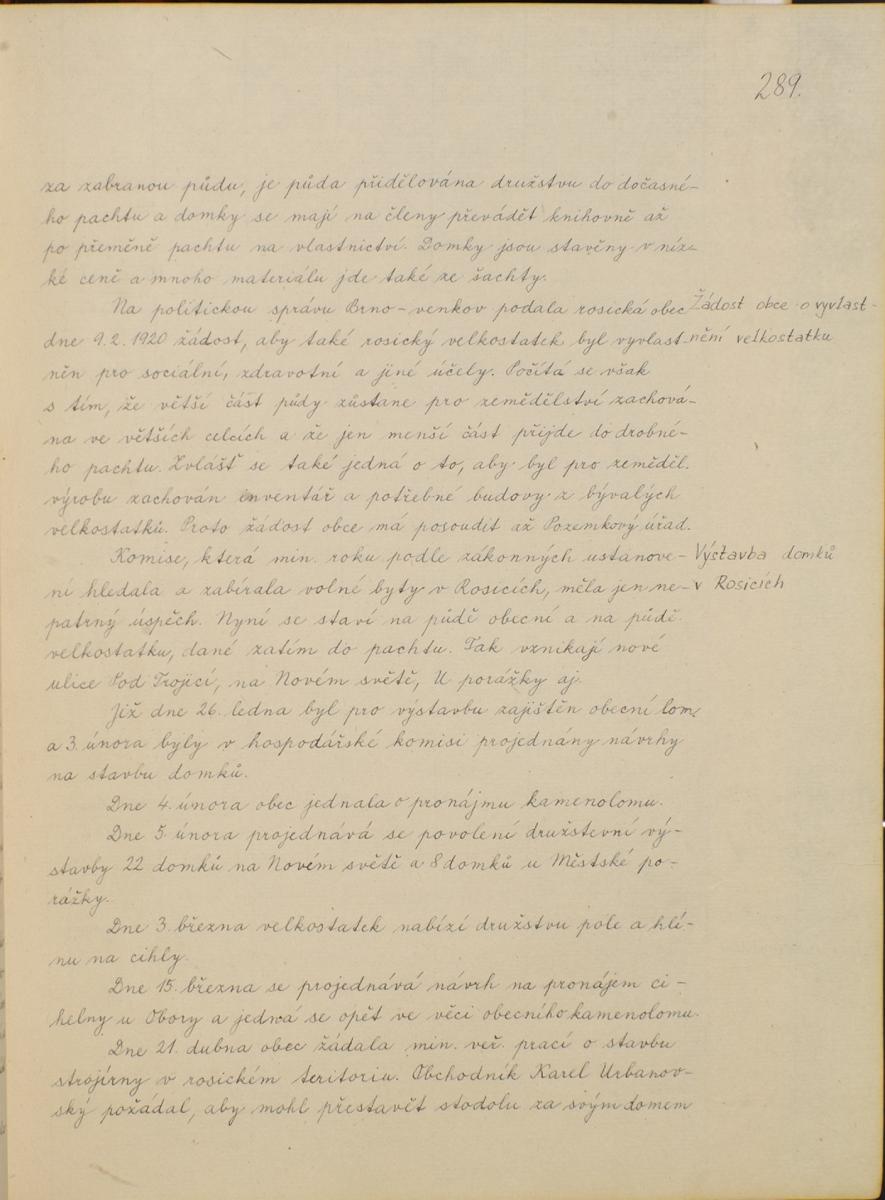 289.
za zabranou půdu, je půda přidělována družstvu do dočasné-
ho pachtu a domky se mají na členy převádět knihovně až
po přeměně pachtu na vlastnictví. Domky jsou stavěny v níz-
ké ceně a mnoho materiálu jde také ze šachty.
Na politickou správu Brno-venkov podala rosická obec
Žádost obce o vyvlast-
dne 9.2.1920 žádost, aby také rosický velkostatek byl vyvlast-
nění velkostatku
něn pro sociální, zdravotní a jiné účely. Počítá se však
s tím, že větší část půdy zůstane pro zemědělství zachová-
na ve větších celcích a že jen menší část přijde do drobné-
ho pachtu. Zvlášť se také jedná o to, aby byl pro zeměděl.
výrobu zachován inventář a potřebné budovy z bývalých
velkostatků. Proto žádost obce má posoudit až Pozemkový úřad.
Komise, která min. roku podle zákonných ustanove-
Výstavba domků
ní hledala a zabírala volné byty v Rosicích, měla jen ne-
v Rosicích
patrný úspěch. Nyní se staví na půdě obecní a na půdě
velkostatku, dané zatím do pachtu. Tak vznikají nové
ulice Pod Trojicí, na Novém světě, U porážky aj.
Již dne 26. ledna byl pro výstavbu zajištěn obecní lom,
a 3. února byly v hospodářské komisi projednány návrhy
na stavbu domků.
Dne 4. února obec jednala o pronájmu kamenolomu.
Dne 5. února projednává se povolení družstevní vý-
stavby 22 domků na Novém světě a 8 domků u Městské po-
rážky.
Dne 3. března velkostatek nabízí družstvu pole a hlí-
nu na cihly.
Dne 15. března se projednává návrh na pronájem ci-
helny u Obory a jedná se opět ve věci obecního kamenolomu.
Dne 21. dubna obec žádala min. veř. prací o stavbu
strojírny v rosickém teritoriu. Obchodník Karel Urbanov-
ský požádal, aby mohl přestavět stodolu za svým domem